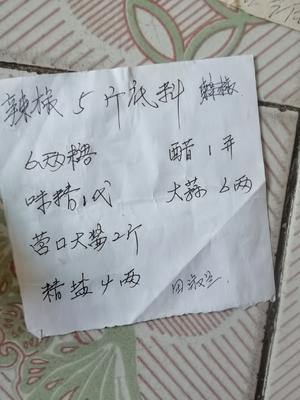 辣椒 5 斤底料
6两糖 醋 1
味精1代 大蒜 6两
营口大酱2斤
精盐 4两